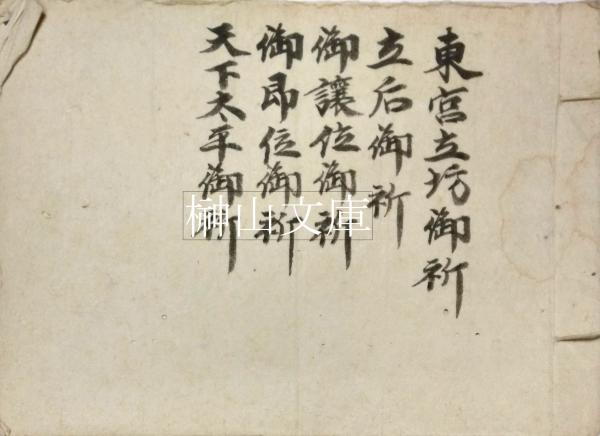 東宮立坊御祈
立后御祈
御讓位御祈
御即位御祈
天下太平御祈
榊山文庫